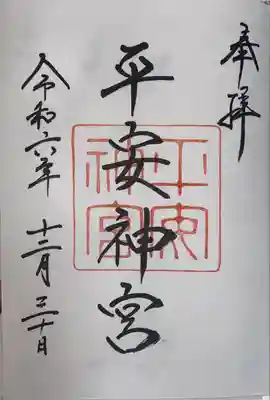 奉拝
平安神宮
平安神宮
令和六年 十二月 三十日